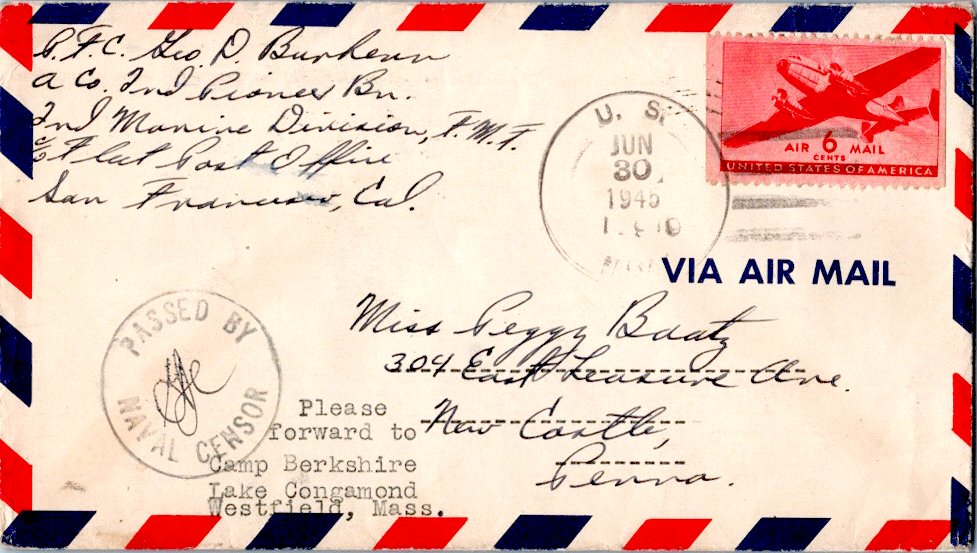 P.F.C. Geo. D. Burhenn
A Co. 2nd Pioneer Bn.
2nd Marine Division, F.M.F.
c/o Fleet Post Office
San Francisco, Cal.
U. S.
JUN
30
1945
AIR 6 MAIL
CENTS
UNITED STATES OF AMERICA
VIA AIR MAIL
PASSED BY
NAVAL CENSOR
Miss Peggy Baatz
304 East Leasure Ave.
New Castle,
Penna.
Please
forward to
Camp Berkshire
Lake Congamond
Westfield, Mass.